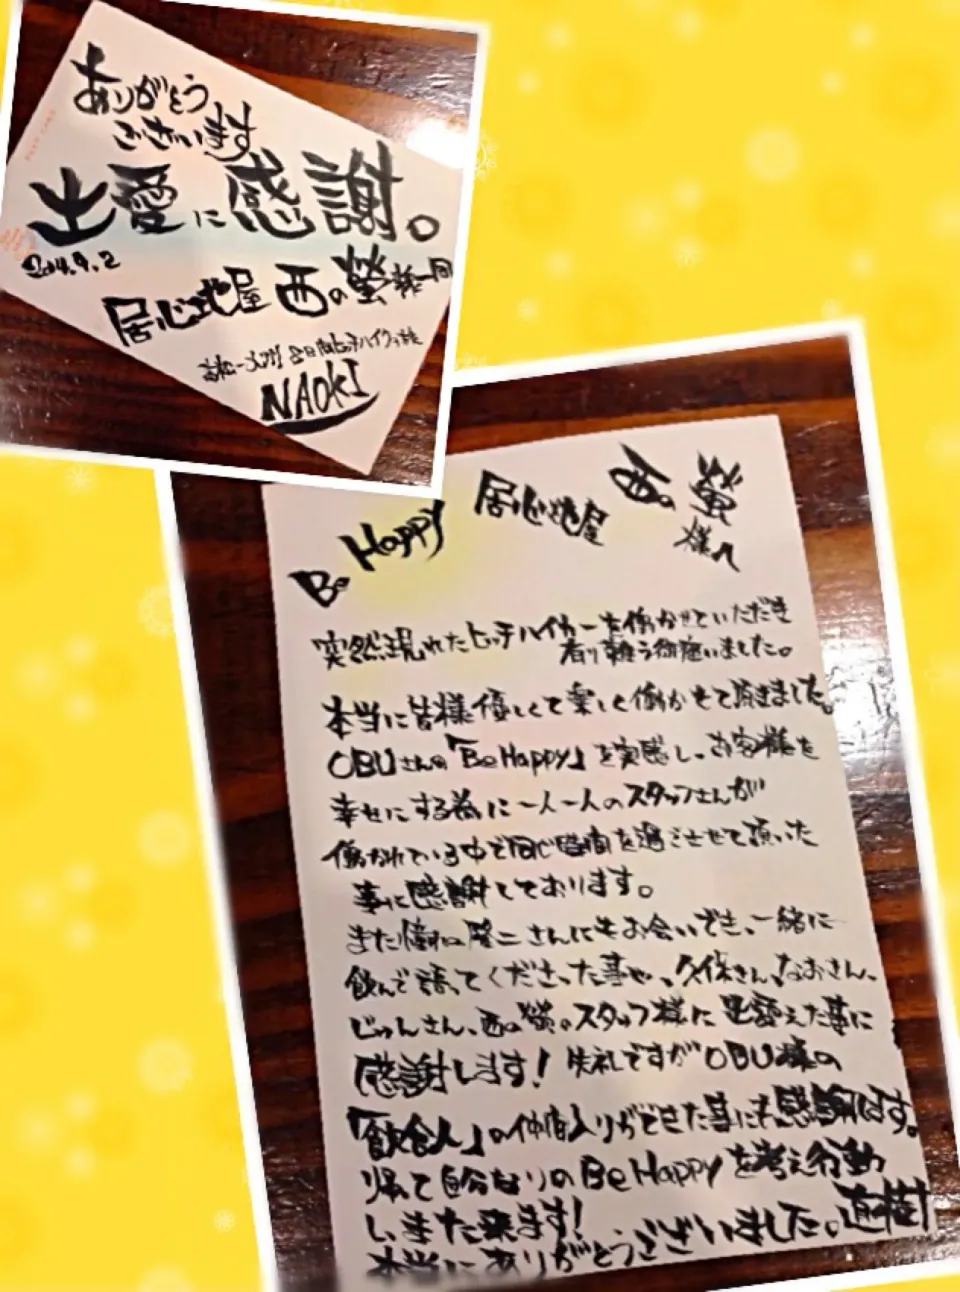 ありがとう
ございます
出愛に感謝。
2014.9.2
居心地屋 西の螢 様一同
NAOKI
Be Happy 居心地屋 西の螢
様へ
突然現れたヒッチハイカーを働かせていただき
有り難う御座いました。
本当に皆様優しくて楽しく働かせて頂きました。
OBUさんの「Be Happy」を実感し、お客様を
幸せにする為に一人一人のスタッフさんが
働かれている中で同じ時間を過ごさせて頂いた
事に感謝しております。
また憧れの隆二さんにもお会いでき、一緒に
飲んで語ってくださった事や、久保さん、なおさん、
じゅんさん、西の螢のスタッフ様に出愛えた事に
感謝します！失礼ですがOBU様の
「飲食人」の仲間入りができた事にも感謝です。
帰って自分なりのBe Happyを考え行動
し、また来ます！
本当にありがとうございました。直樹